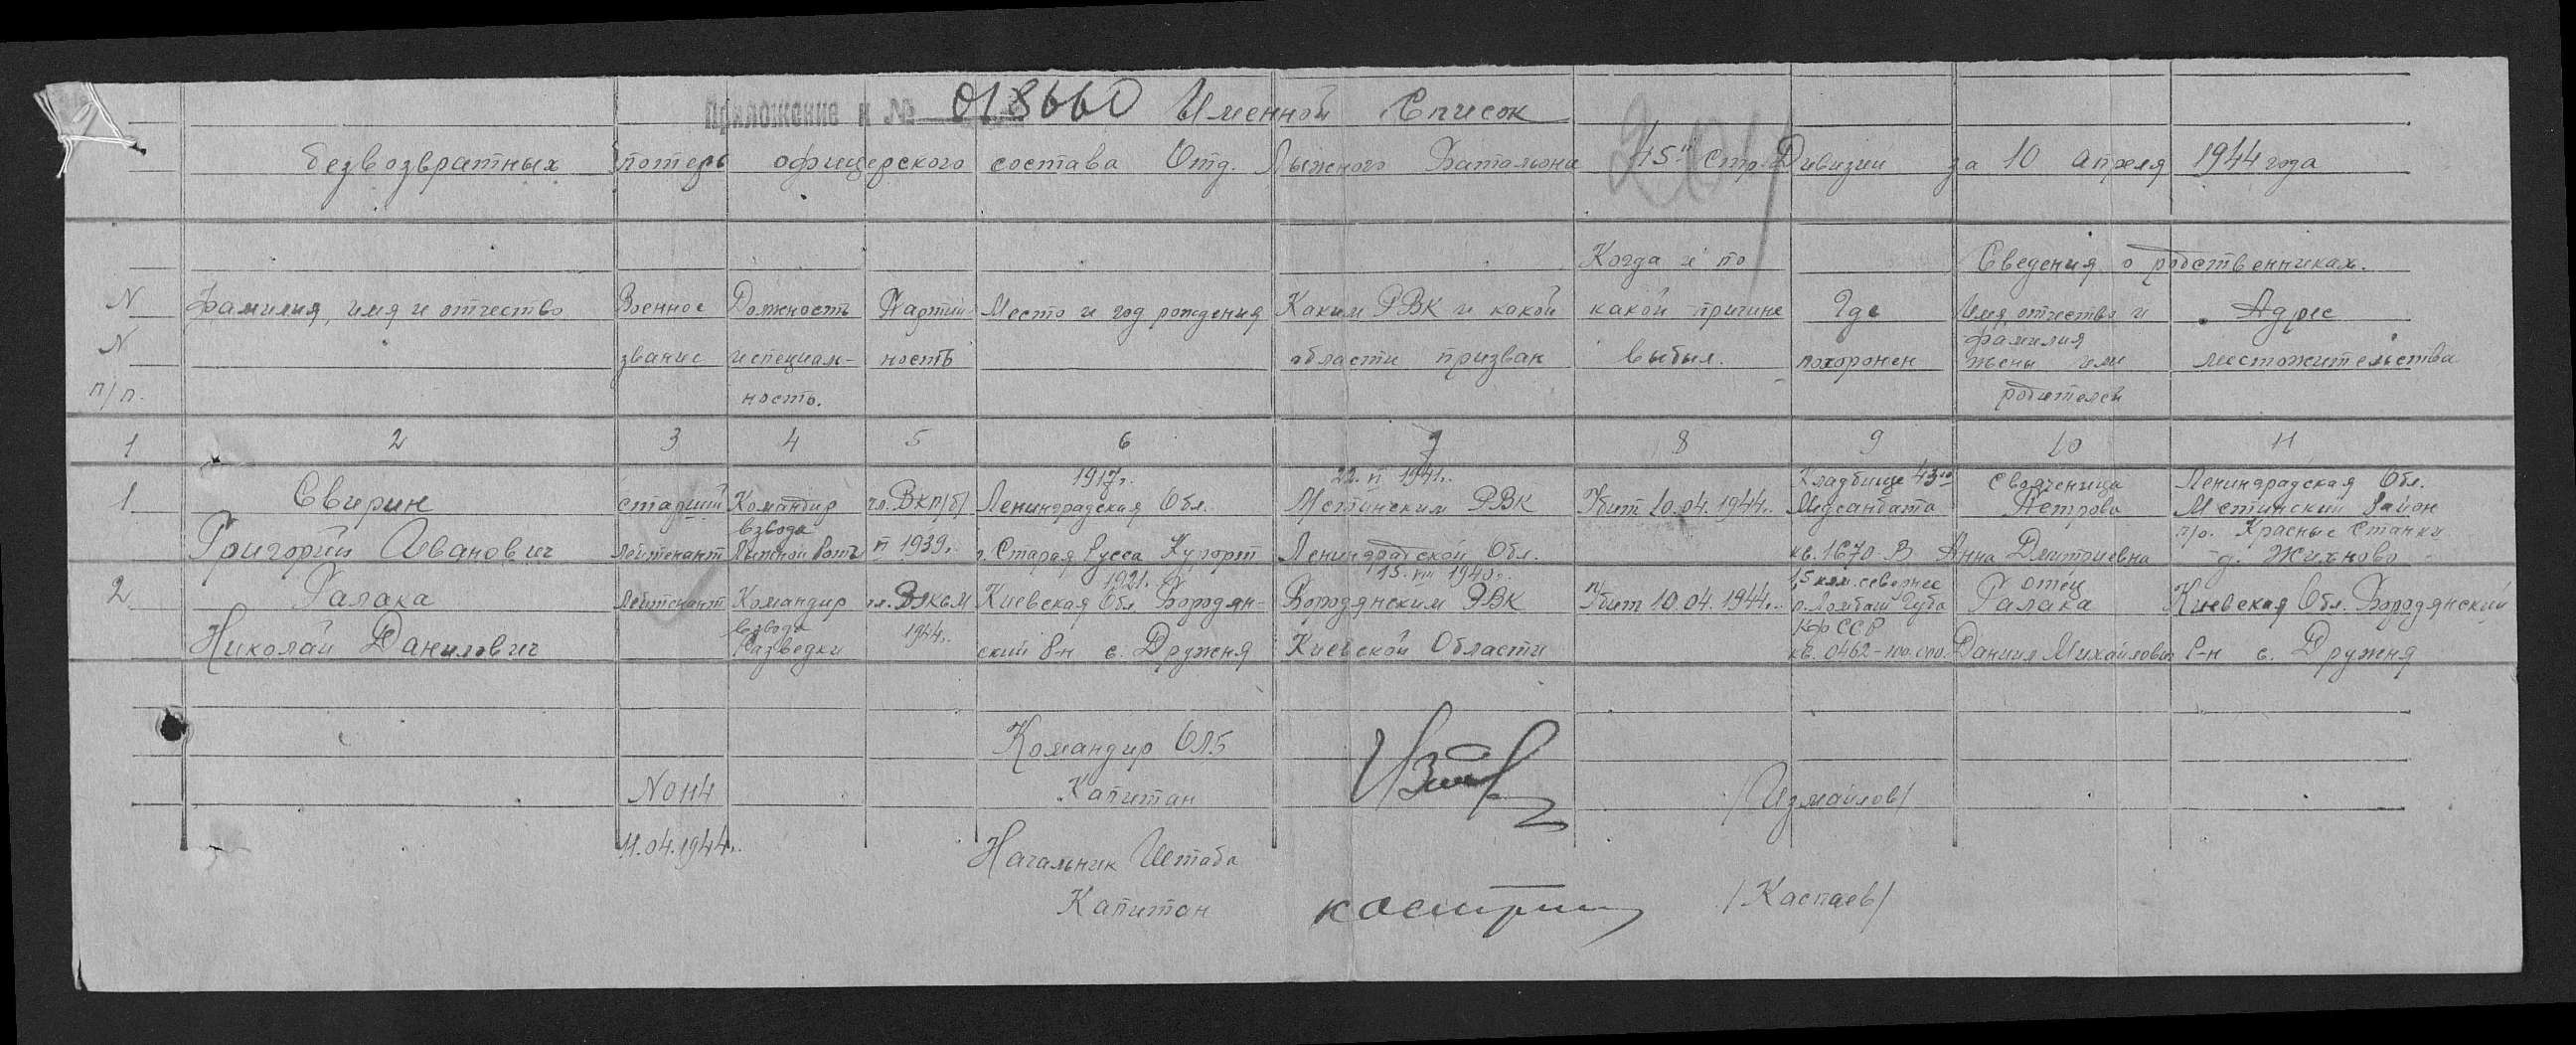 Приложение к № 018660 Именной Список
безвозвратных потерь офицерского состава Отд. Лыжного Батальона 45й стр. Дивизии за 10 апреля 1944 года
N N п/п.
Фамилия, имя и отчество
Военное звание
Должность и специальность.
Партийность
Место и год рождения
Каким РВК и какой области призван
Когда и по какой причине выбыл.
Где похоронен
Сведения о родственниках.
Имя, отчество и фамилия жены или родителей
Адрес местожительства
1 2 3 4 5 6 7 8 9 10 11
1
Свирин
Григорий Иванович
старший
Лейтенант
Командир
взвода
Лыжной Роты
чл. ВКП/б/
1939г.
1917г.
Ленинградская Обл.
г. Старая Русса Курорт
22. 1941г.
Мстинским РВК
Ленинградской Обл.
Убит 10.04.1944г.
Кладбище 43го
Медсанбата
кв. 1670-В
Петрова
Анна Дмитриевна
Ленинградская Обл.
Мстинский Район
п/о. Красные Станки
д. Жихново
2
Галака
Николай Данилович
Лейтенант
Командир
взвода
Разведки
чл. ВЛКСМ
1944г.
1921г.
Киевская Обл. Бородян-
ский р-н с. Дружня
15. VIII 1940г.
Бородянским РВК
Киевской Области
Убит 10.04.1944г.
1,5 клм. севернее
Губа
КФССР
кв. 0462-100.000.
отец
Галака
Даниил Михайлович
Киевская Обл. Бородянский
р-н с. Дружня
Командир ОЛБ
Капитан
/Измайлов/
N 0114
11.04.1944г.
Начальник Штаба
Капитан
/Каспаев/